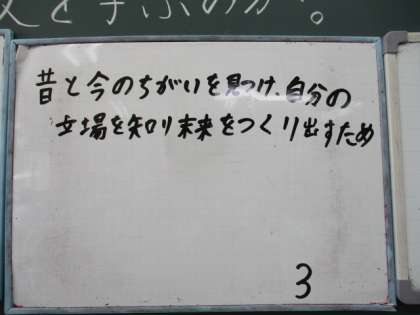 を学ぶのか。
昔と今のちがいを見つけ、自分の
立場を知り未来をつくり出すため
3